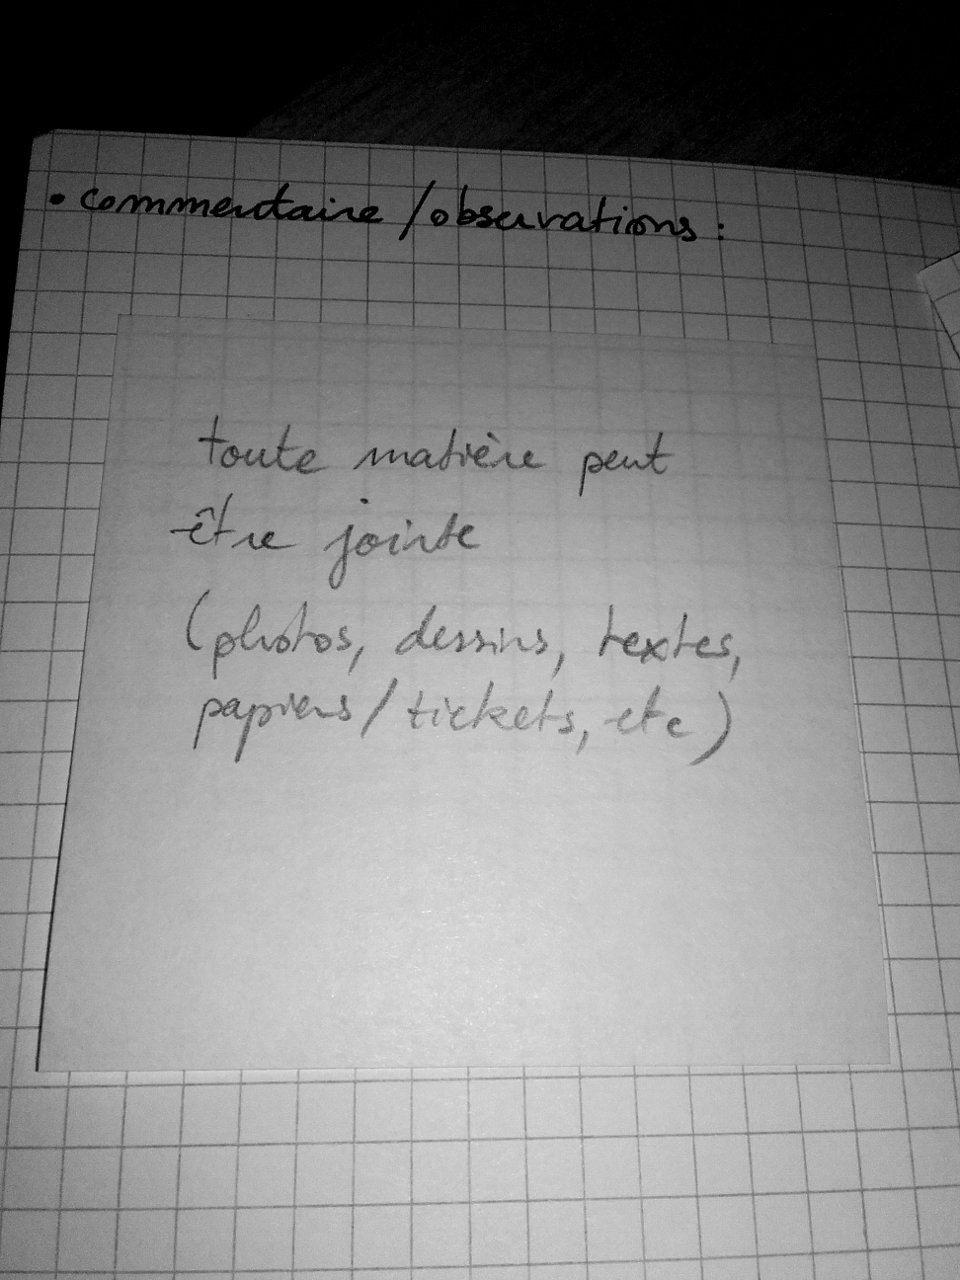 • commentaire / observations :
toute matière peut
être jointe
(photos, dessins, textes,
papiers / tickets, etc)